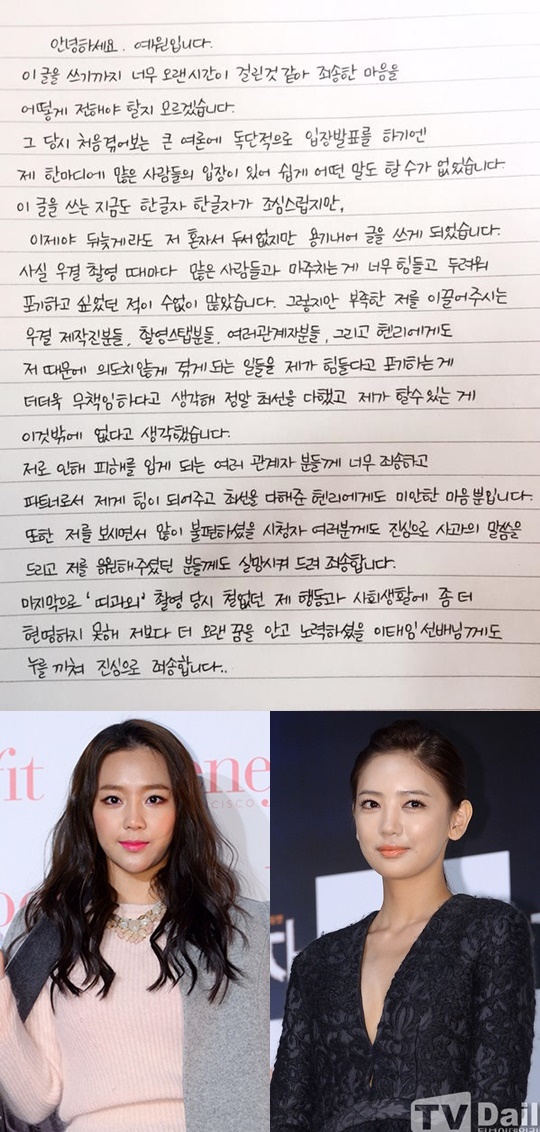 안녕하세요. 예원입니다.
이 글을 쓰기까지 너무 오랜시간이 걸린것 같아 죄송한 마음을
어떻게 전해야 할지 모르겠습니다.
그 당시 처음겪어보는 큰 여론에 독단적으로 입장발표를 하기엔
제 한마디에 많은 사람들의 입장이 있어 쉽게 어떤 말도 할 수가 없었습니다.
이 글을 쓰는 지금도 한글자 한글자가 조심스럽지만,
이제야 뒤늦게라도 저 혼자서 두서없지만 용기내어 글을 쓰게 되었습니다.
사실 우결 촬영 때마다 많은 사람들과 마주치는게 너무 힘들고 두려워
포기하고 싶었던 적이 수없이 많았습니다. 그렇지만 부족한 저를 이끌어주시는
우결 제작진분들, 촬영스탭분들, 여러관계자분들, 그리고 헨리에게도
저 때문에 의도치않게 겪게 되는 일들을 제가 힘들다고 포기하는게
더더욱 무책임하다고 생각해 정말 최선을 다했고 제가 할수있는 게
이것밖에 없다고 생각했습니다.
저로 인해 피해를 입게 되는 여러 관계자 분들께 너무 죄송하고
파트너로서 제게 힘이 되어주고 최선을 다해준 헨리에게도 미안한 마음 뿐입니다.
또한 저를 보시면서 많이 불편하셨을 시청자 여러분께도 진심으로 사과의 말씀을
드리고 저를 응원해주셨던 분들께도 실망시켜 드려 죄송합니다.
마지막으로 '띠과외' 촬영 당시 철없던 제 행동과 사회생활에 좀 더
현명하지 못해 저보다 더 오랜 꿈을 안고 노력하셨을 이태임 선배님께도
누를 끼쳐 진심으로 죄송합니다..
fit
ene
CISCO
TV Dail